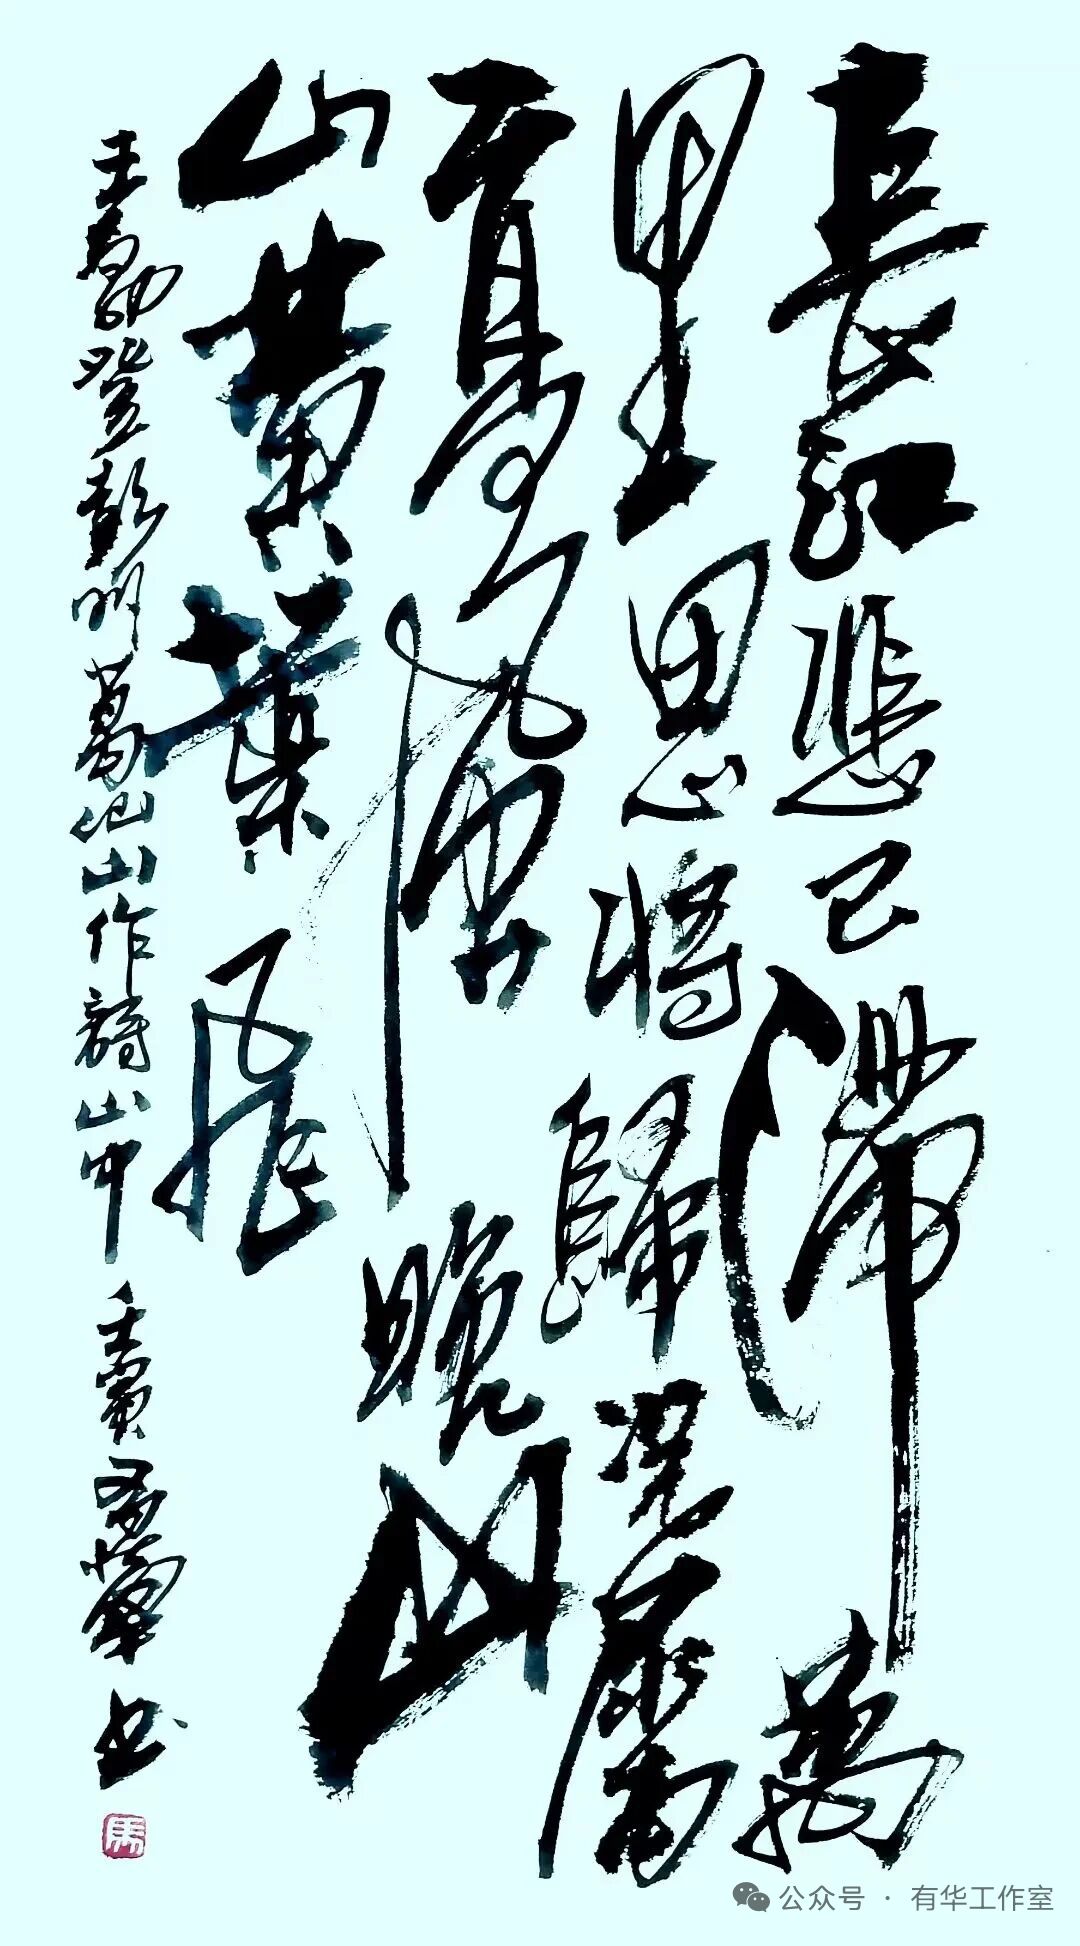 長江悲已滯萬
里思將歸況屬
高風晚山
山黃葉飛
王勃登彭州葛仙山作詩山中 壬寅 書
馬
公众号 · 有华工作室